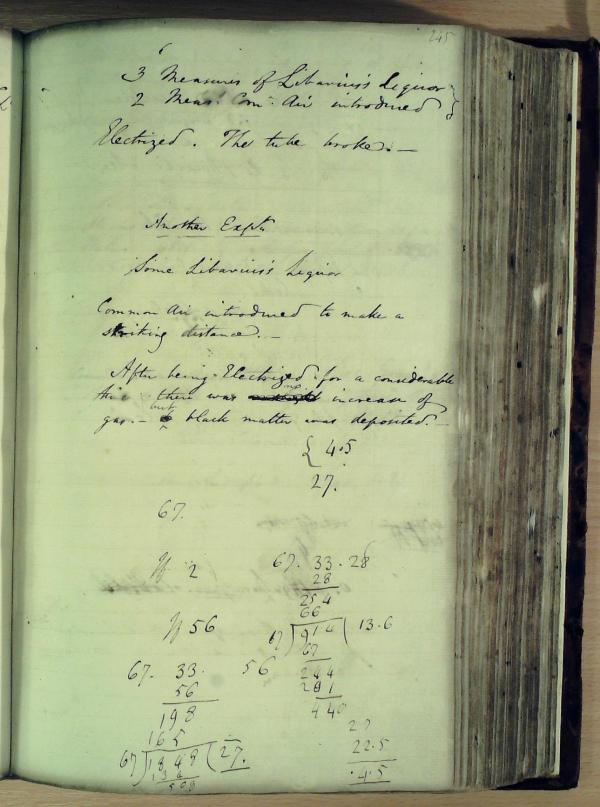 245
3 Measures of Libavius's Liquor
2 Meas.s Com.n Air introduced
Electrized. The tube broke. —
Another Expt.
Some Libavius's Liquor
Common Air introduced to make a
striking distance. —
After being Electrized for a considerable
time there was no increase of
gas. — but black matter was deposited. —
4.5
27.
67.
If 2
67. 33. 28
28
254
66
If 56
67) 914 ( 13.6
67
67. 33. 56
244
56
201
198
440
165
27
67) 1848 ( 27.
22.5
134
4.5
508